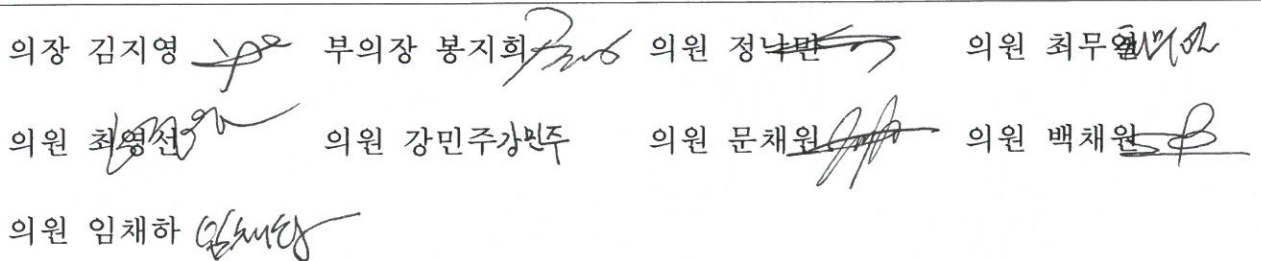 의장 김지영 부의장 봉지희 의원 정나만 의원 최무열
의원 최영선 의원 강민주 강민주 의원 문채원 의원 백채원
의원 임채하 임채하